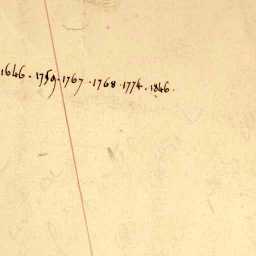 1646 . 1759 . 1767 . 1768 . 1774 . 1846 .